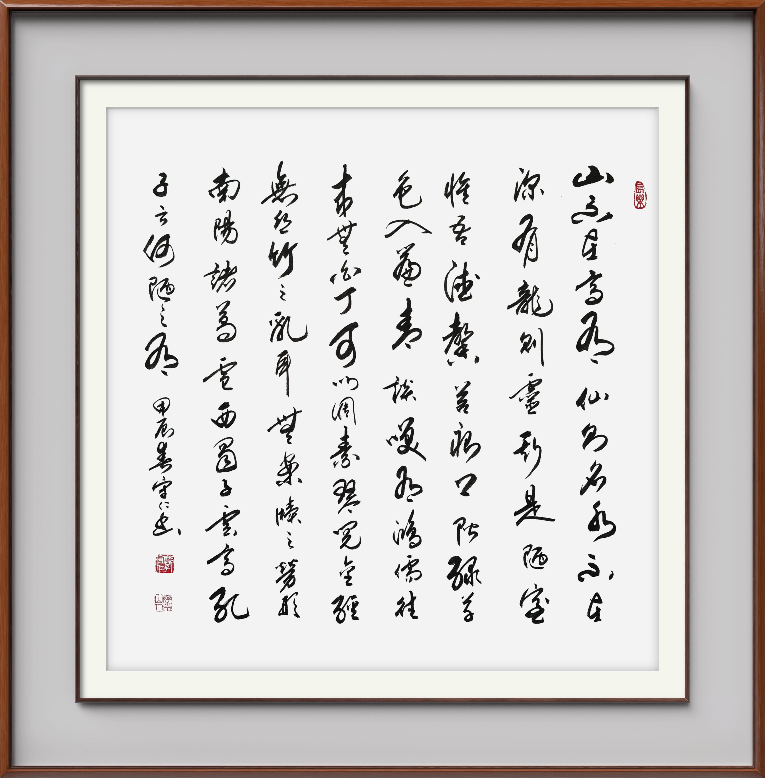 山不在高有仙则名水不在
深有龍则靈斯是陋室
惟吾德馨苔痕上階綠草
色入簾青談笑有鴻儒往
來無白丁可以調素琴閱金經
無丝竹之亂耳無案牘之勞形
南陽諸葛廬西蜀子雲亭孔
子云何陋之有 甲辰春守仁书